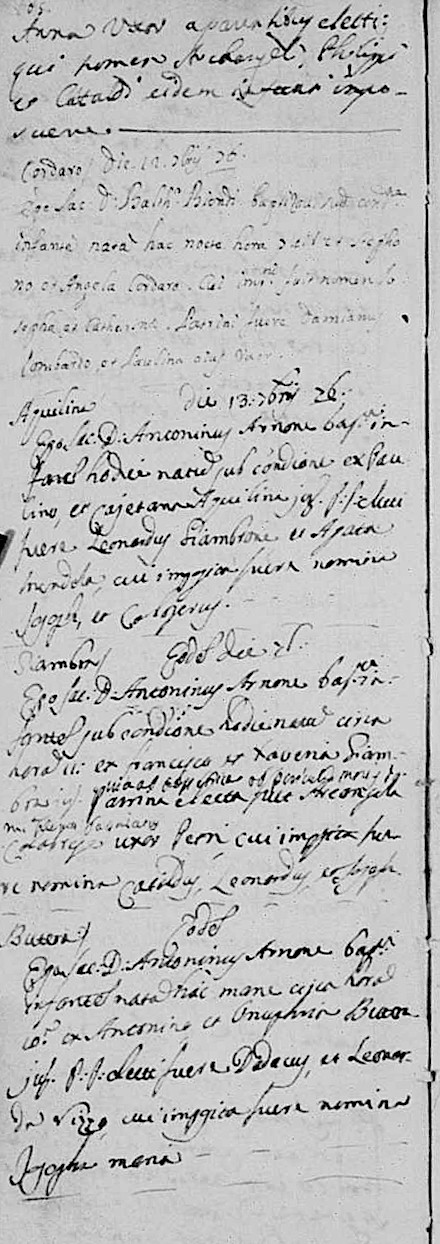 Anna Uxor a parentibus electi:
qui nomen Michaelis, Philippi
et Cataldi eidem Infanti impo-
suere.
Cordaro die 12. 7bris 76.
Ego Sac. D. Balth. Biondi baptizavi sub condne
infante natá hac nocte hora et Stepha
no et Angela Cordaro. Cui fuit nomen Jo
sepha, et Catherina. Patrini fuere Damianus
Lombardo et Paulina ejus Uxor.
Aquilina die 13. 7bris 76.
Ego Sac. D. Antoninus Arnone bap. in-
fantes hodie natus sub condione ex Pau
lino, et Cajetana Aquilina jug. P. P. electi
fuere Leonardus Giambrone et Agata
Mendola, cui imposita fuere nomina
Joseph, et Calogerus.
Giambra Eodem die 76.
Ego Sac. D. Antoninus Arnone bap. in-
fantes sub condione hodie natus circa
hora 11: ex Francisco et Xaveria Giam-
bra jug. ob periculum mortis
Patrina electa fuit Arcangela
Calabrese uxor Petri, cui imposita fue
re nomina Cataldus, Leonardus, et Joseph
Butera Eodem
Ego Sac. D. Antoninus Arnone bap.
infantes nata hac mane circa hora
ex Antonino et Onuphria Butera
jug. P. P. electi fuere Didacus, et Leonar
da Rizzo, cui imposita fuere nomina
Josepha Maria